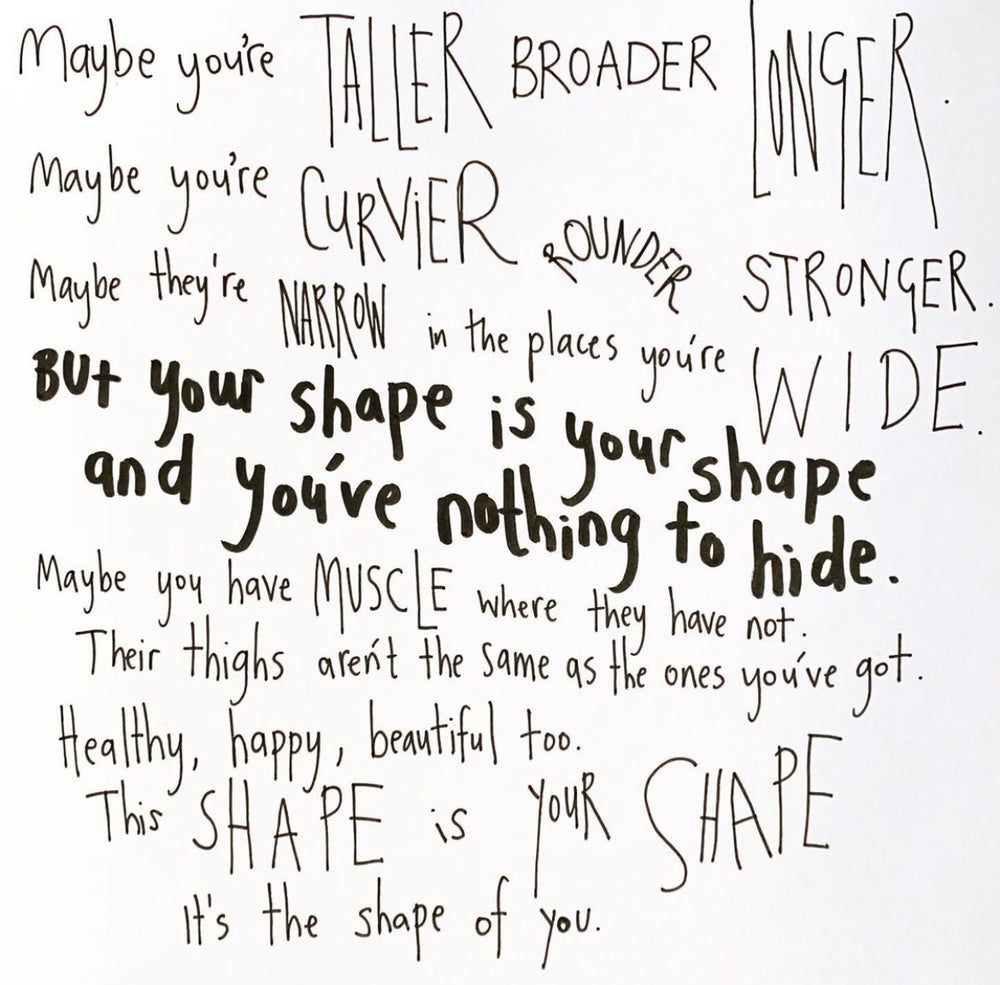 Maybe you're TALLER BROADER LONGER.
Maybe you're CURViER ROUNDER STRONGER.
Maybe they're NARROW in the places you're WIDE.
BUt your shape is your shape
and you've nothing to hide.
Maybe you have MUSCLE where they have not.
Their thighs aren't the same as the ones you've got.
Healthy, happy, beautiful too.
This SHAPE is YOUR SHAPE
It's the shape of you.